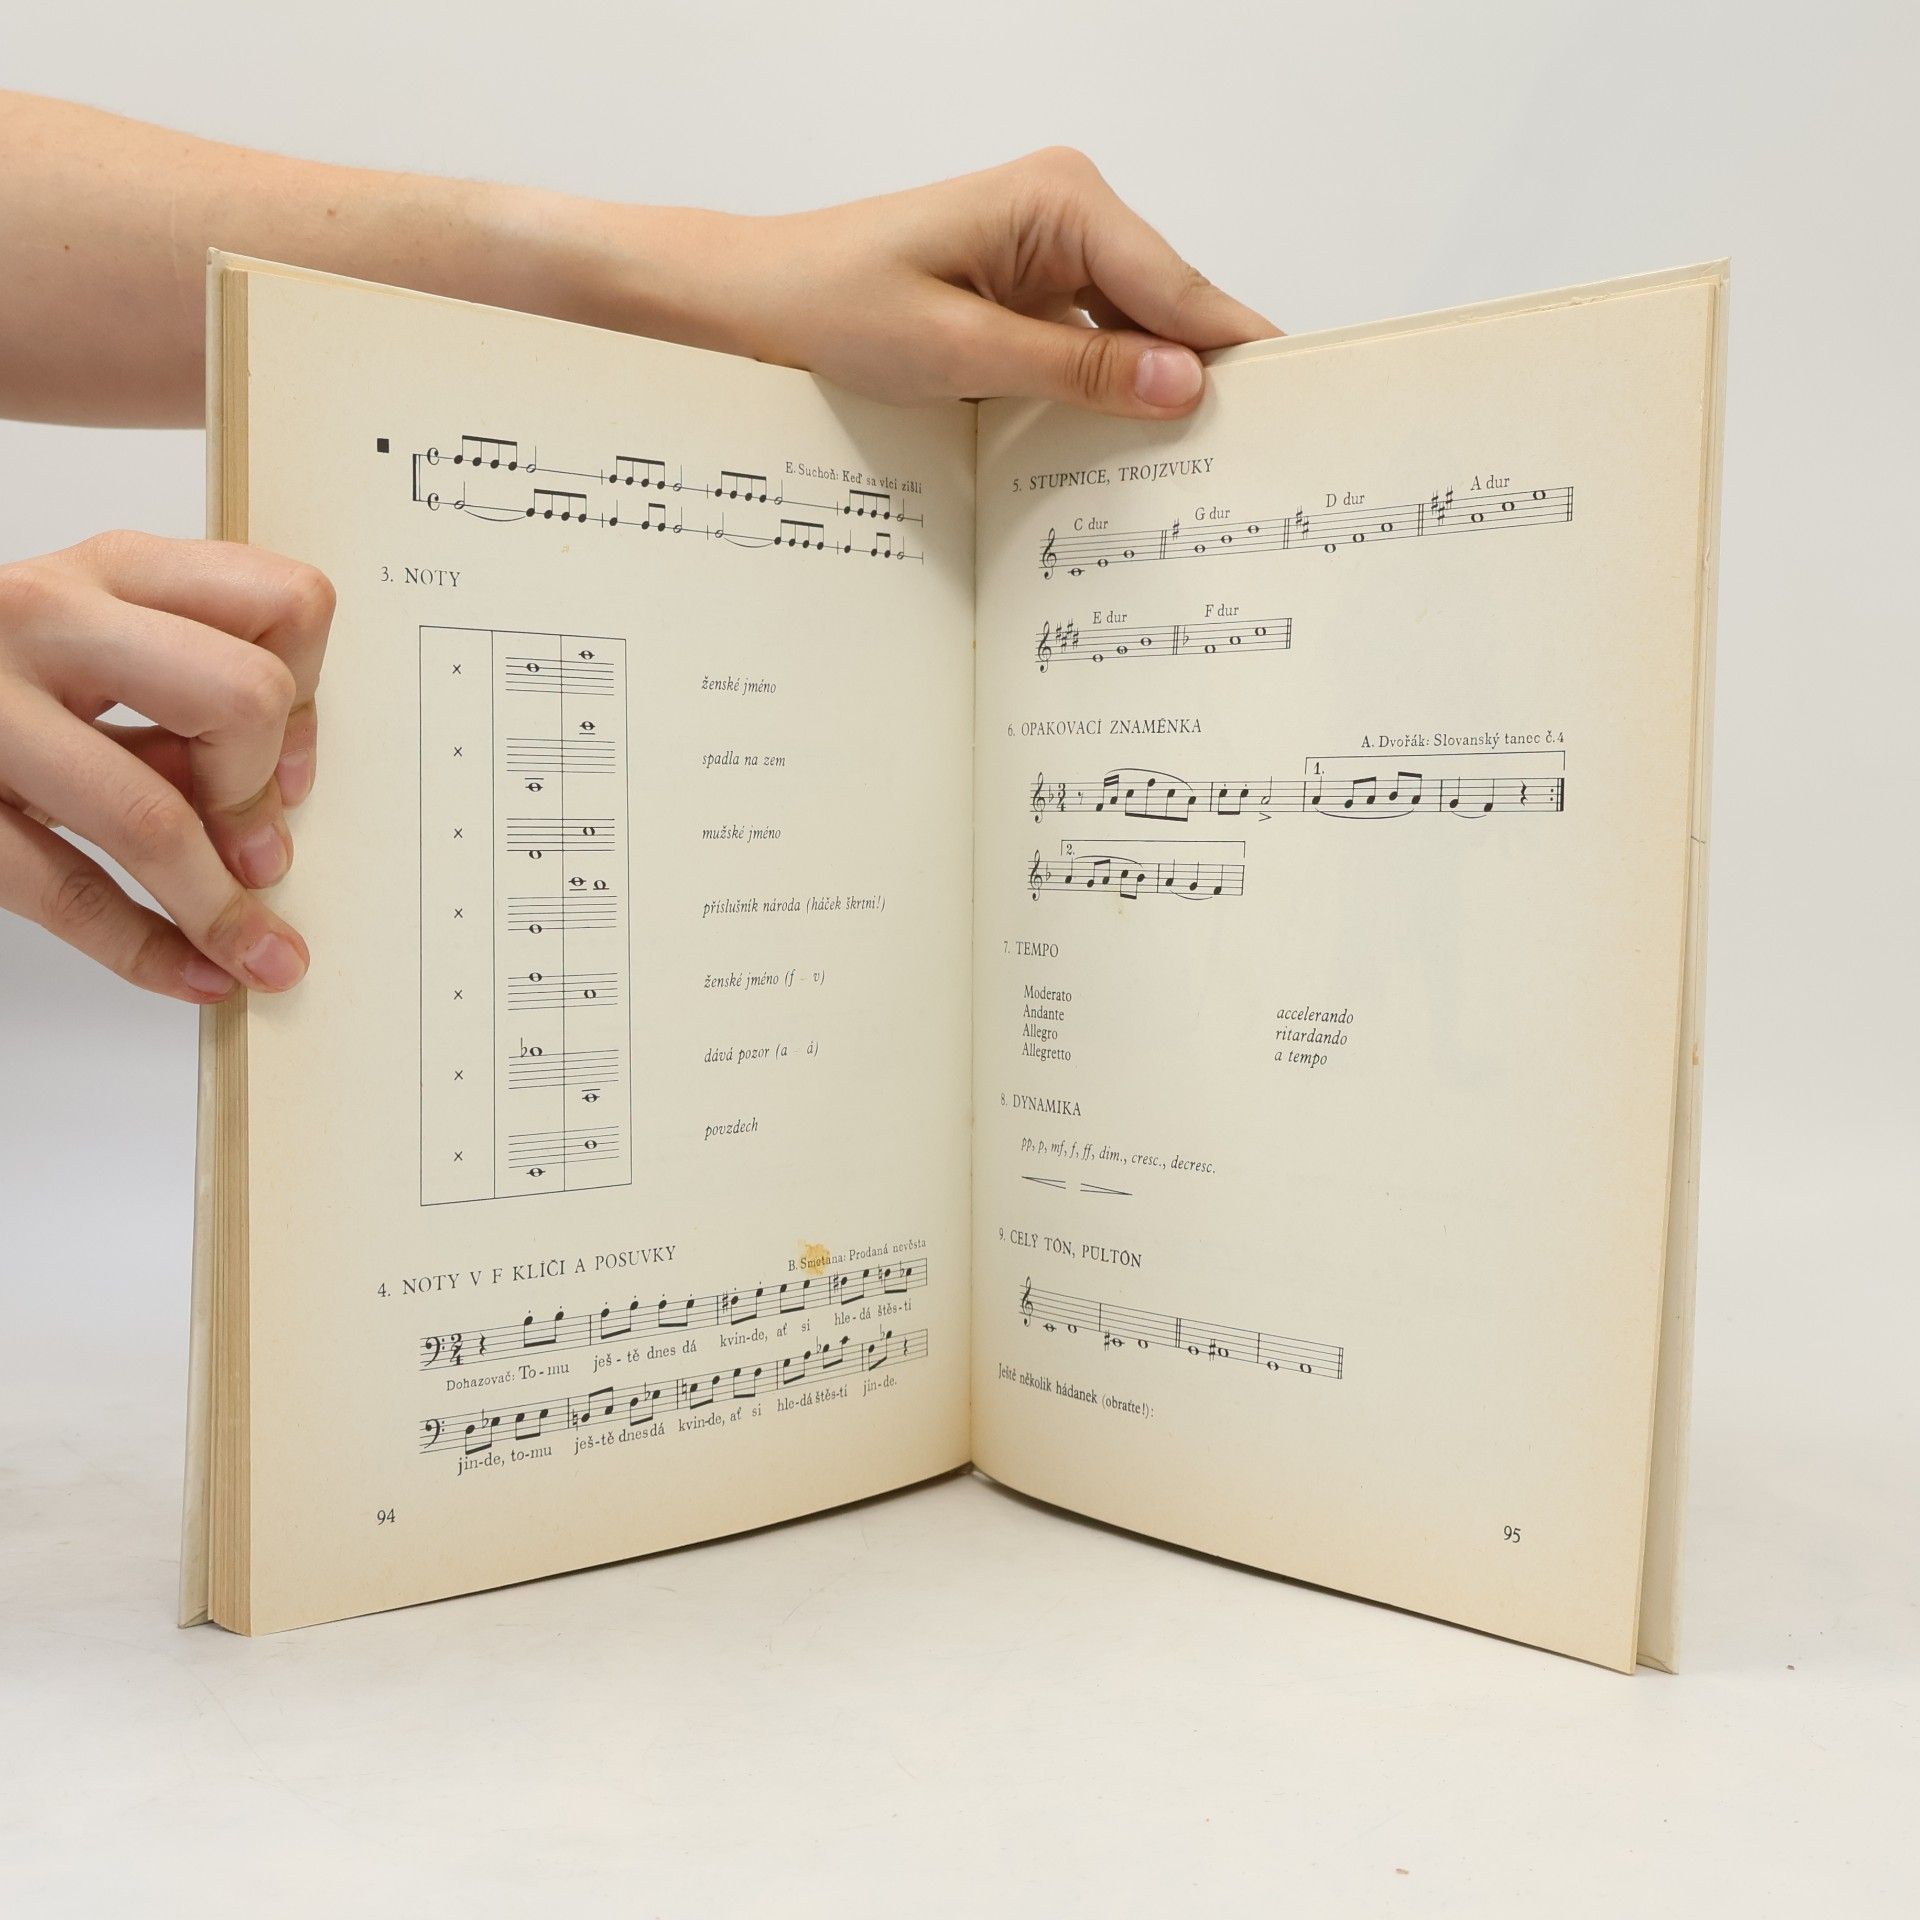 E. Suchoň: Keď sa vlci zišli
3. NOTY
×
ženské jméno
×
spadla na zem
×
mužské jméno
×
příslušník národa (háček škrtni!)
×
ženské jméno (f – v)
×
dává pozor (a – á)
×
povzdech
4. NOTY V F KLÍČI A POSUVKY
B. Smetana: Prodaná nevěsta
Dohazovač: To - mu ješ - tě dnes dá kvin-de, ať si hle - dá štěs - tí
jin-de, to-mu ješ-tě dnes dá kvin-de, ať si hle-dá štěs-tí jin-de.
94
5. STUPNICE, TROJZVUKY
C dur G dur D dur A dur
E dur F dur
6. OPAKOVACÍ ZNAMÉNKA
A. Dvořák: Slovanský tanec č. 4
1.
2.
7. TEMPO
Moderato
Andante
Allegro
Allegretto
accelerando
ritardando
a tempo
8. DYNAMIKA
pp, p, mf, f, ff, dim., cresc., decresc.
9. CELÝ TÓN, PŮLTÓN
Ještě několik hádanek (obraťte!):
95